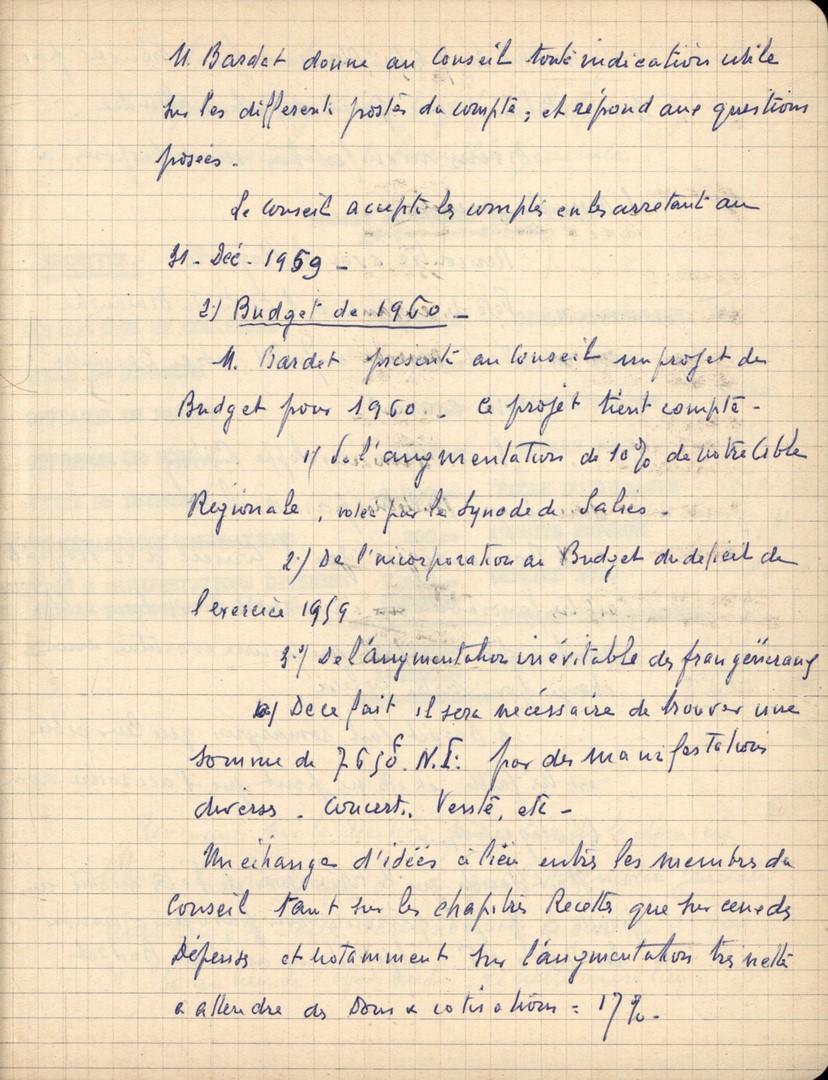 M. Bardet donne au Conseil toute indication utile
sur les differents postes du compte, et répond aux questions
posées.
Le Conseil accepte les comptes en les arretant au
31 - Déc - 1959 -
2) Budget de 1960 -
M. Bardet présente au Conseil un projet de
Budget pour 1960. Ce projet tient compte -
1) De l'augmentation de 10% de notre Cible
Régionale, votée par le Synode de Salies.
2) De l'incorporation au Budget du deficit de
l'exercice 1959
3°) De l'augmentation inévitable des frais généraux
De ce fait il sera nécessaire de trouver une
somme de N.F. par des manifestations
diverses. Concert, Vente, etc -
Un échange d'idées a lieu entre les membres du
Conseil tant sur les chapitres Recettes que sur ceux des
Dépenses et notamment sur l'augmentation très nette
a attendre des Dons & cotisations = 17%.